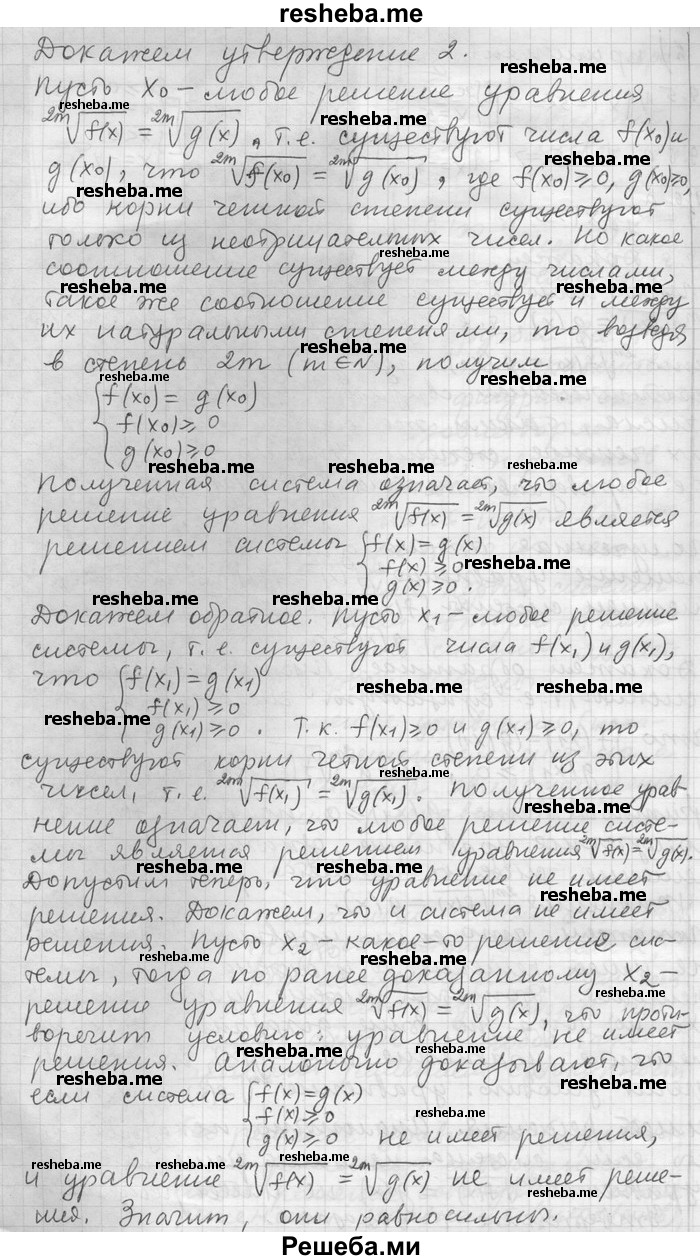 resheba.me
Докажем утверждение 2.
Пусть x₀ – любое решение уравнения
²ᵐ√f(x) = ²ᵐ√g(x), т.е. существуют числа f(x₀) и
g(x₀), что ²ᵐ√f(x₀) = ²ᵐ√g(x₀), где f(x₀)≥0, g(x₀)≥0,
ибо корни четной степени существуют
только из неотрицательных чисел. Но какое
соотношение существует между числами,
такое же соотношение существует и между
их натуральными степенями, то возведя
в степень 2m (m∈N), получим
{ f(x₀) = g(x₀)
f(x₀) ≥ 0
g(x₀) ≥ 0
Полученная система означает, что любое
решение уравнения ²ᵐ√f(x) = ²ᵐ√g(x) является
решением системы { f(x) = g(x)
f(x) ≥ 0
g(x) ≥ 0.
Докажем обратное. Пусть x₁ – любое решение
системы, т.е. существуют числа f(x₁) и g(x₁),
что { f(x₁) = g(x₁)
f(x₁) ≥ 0
g(x₁) ≥ 0. Т.к. f(x₁)≥0 и g(x₁)≥0, то
существуют корни четной степени из этих
чисел, т.е. ²ᵐ√f(x₁) = ²ᵐ√g(x₁). Полученное урав-
нение означает, что любое решение систе-
мы является решением уравнения ²ᵐ√f(x) = ²ᵐ√g(x).
Допустим теперь, что уравнение не имеет
решения. Докажем, что и система не имеет
решения. Пусть x₂ – какое-то решение сис-
темы, тогда по ранее доказанному x₂ –
решение уравнения ²ᵐ√f(x) = ²ᵐ√g(x), что проти-
воречит условию: уравнение не имеет
решения. Аналогично доказывают, что
если система { f(x) = g(x)
f(x) ≥ 0
g(x) ≥ 0 не имеет решения,
и уравнение ²ᵐ√f(x) = ²ᵐ√g(x) не имеет реше-
ния. Значит, они равносильны.
Решеба.ми